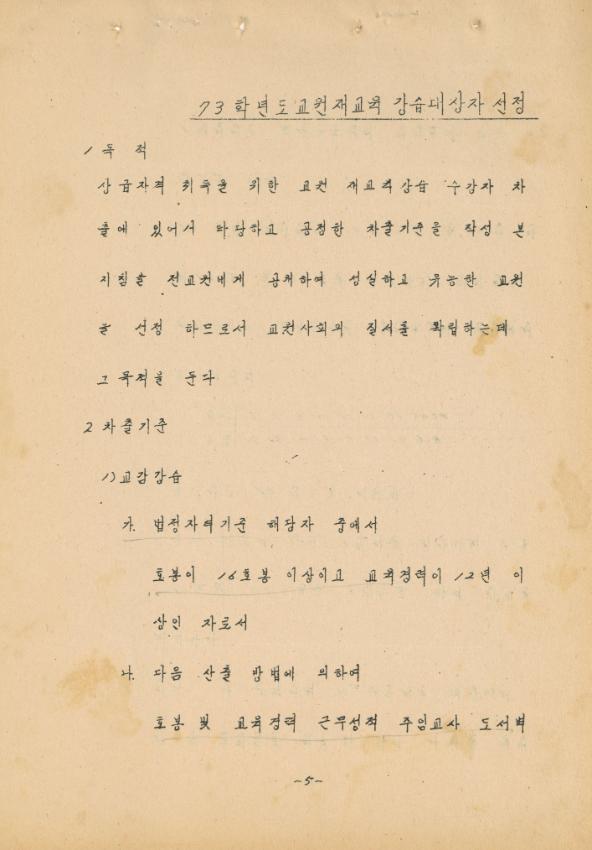 73 학년도교원재교육 강습대상자 선정
1 목 적
상급자격 취득을 위한 교원 재교육강습 수강자 차
출에 있어서 타당하고 공정한 차출기준을 작성 본
지침을 전교원에게 공개하여 성실하고 유능한 교원
을 선정 하므로서 교원사회의 질서를 확립하는데
그 목적을 둔다
2 차출기준
1) 교감강습
가. 법정자격기준 해당자 중에서
호봉이 16호봉 이상이고 교육경력이 12년 이
상인 자로서
나. 다음 산출 방법에 의하여
호봉 및 교육경력 근무성적 주임교사 도서벽
-5-